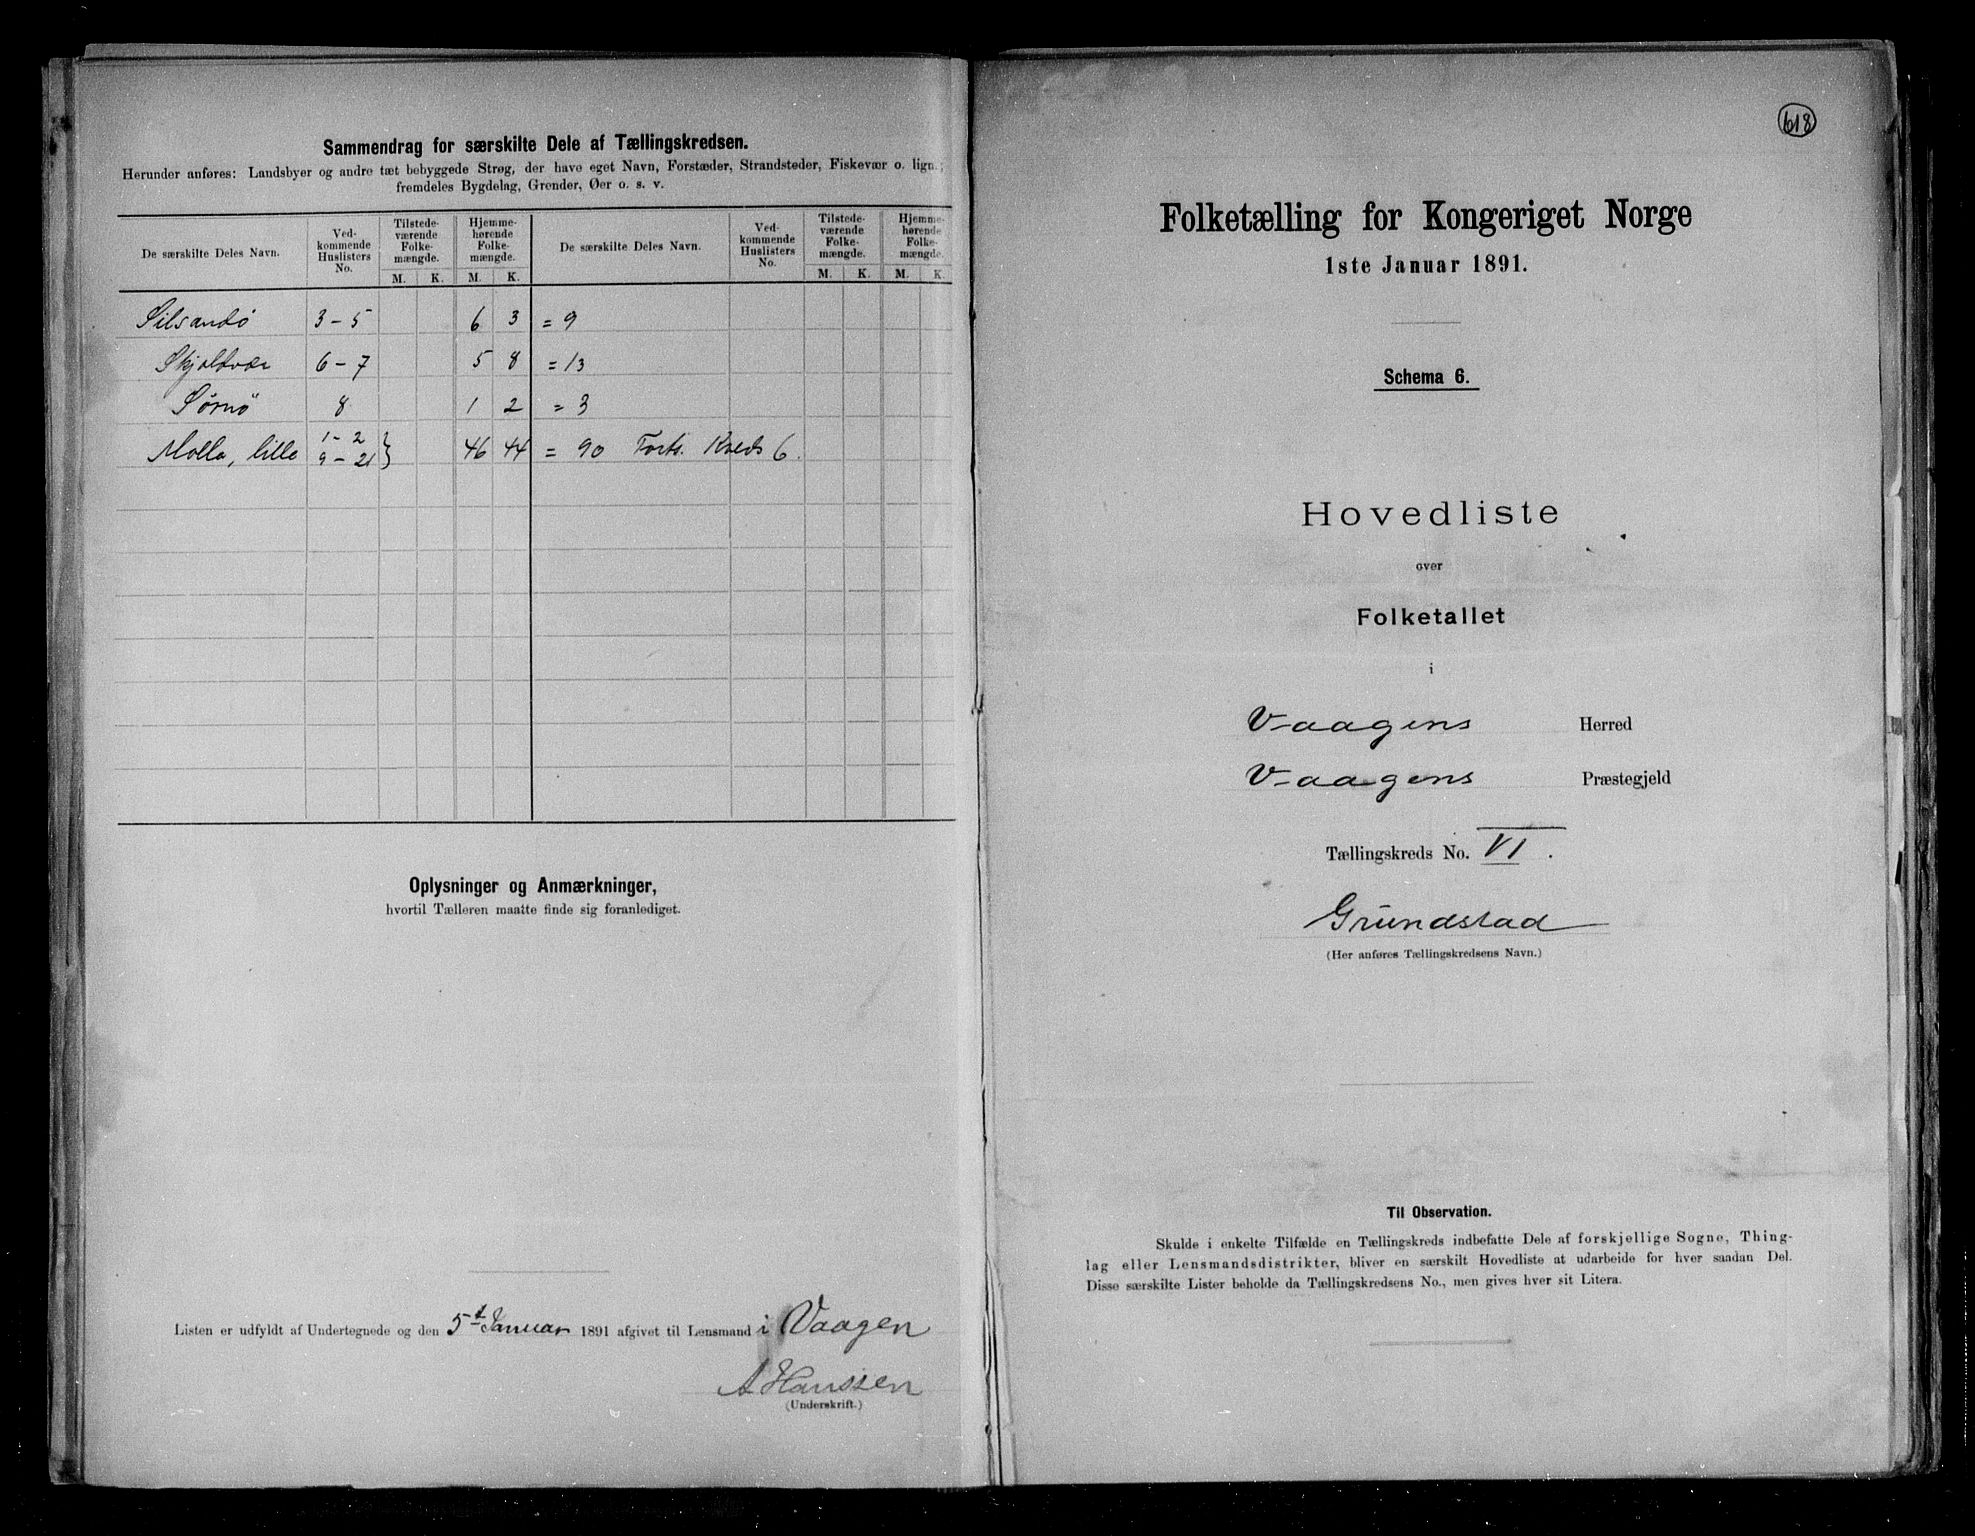 Sammendrag for særskilte Dele af Tællingskredsen.
Herunder anføres: Landsbyer og andre tæt bebyggede Strøg, der have eget Navn, Forstæder, Strandsteder, Fiskevær o. lign.;
fremdeles Bygdelag, Grender, Øer o. s. v.
De særskilte Deles Navn. Ved-kommende Huslisters No. Tilstede-værende Folke-mængde. Hjemme-hørende Folke-mængde. De særskilte Deles Navn. Ved-kommende Huslisters No. Tilstede-værende Folke-mængde. Hjemme-hørende Folke-mængde.
M. K. M. K. M. K. M. K.
Silsandö 3 - 5 6 3 = 9
Skjoldvær 6 - 7 5 8 = 13
Sörnö 8 1 2 = 3
Molla, lille 1 - 2 9 - 21 } 46 44 = 90 Forts. Kreds 6.
Oplysninger og Anmærkninger,
hvortil Tælleren maatte finde sig foranlediget.
Listen er udfyldt af Undertegnede og den 5t Januar 1891 afgivet til Lensmand i Vaagen
A Hanssen
(Underskrift.)
618
Folketælling for Kongeriget Norge
1ste Januar 1891.
Schema 6.
Hovedliste
over
Folketallet
i
Vaagens Herred
Vaagens Præstegjeld
Tællingskreds No. VI.
Grundstad
(Her anføres Tællingskredsens Navn.)
Til Observation.
Skulde i enkelte Tilfælde en Tællingskreds indbefatte Dele af forskjellige Sogne, Thing-
lag eller Lensmandsdistrikter, bliver en særskilt Hovedliste at udarbeide for hver saadan Del.
Disse særskilte Lister beholde da Tællingskredsens No., men gives hver sit Litera.